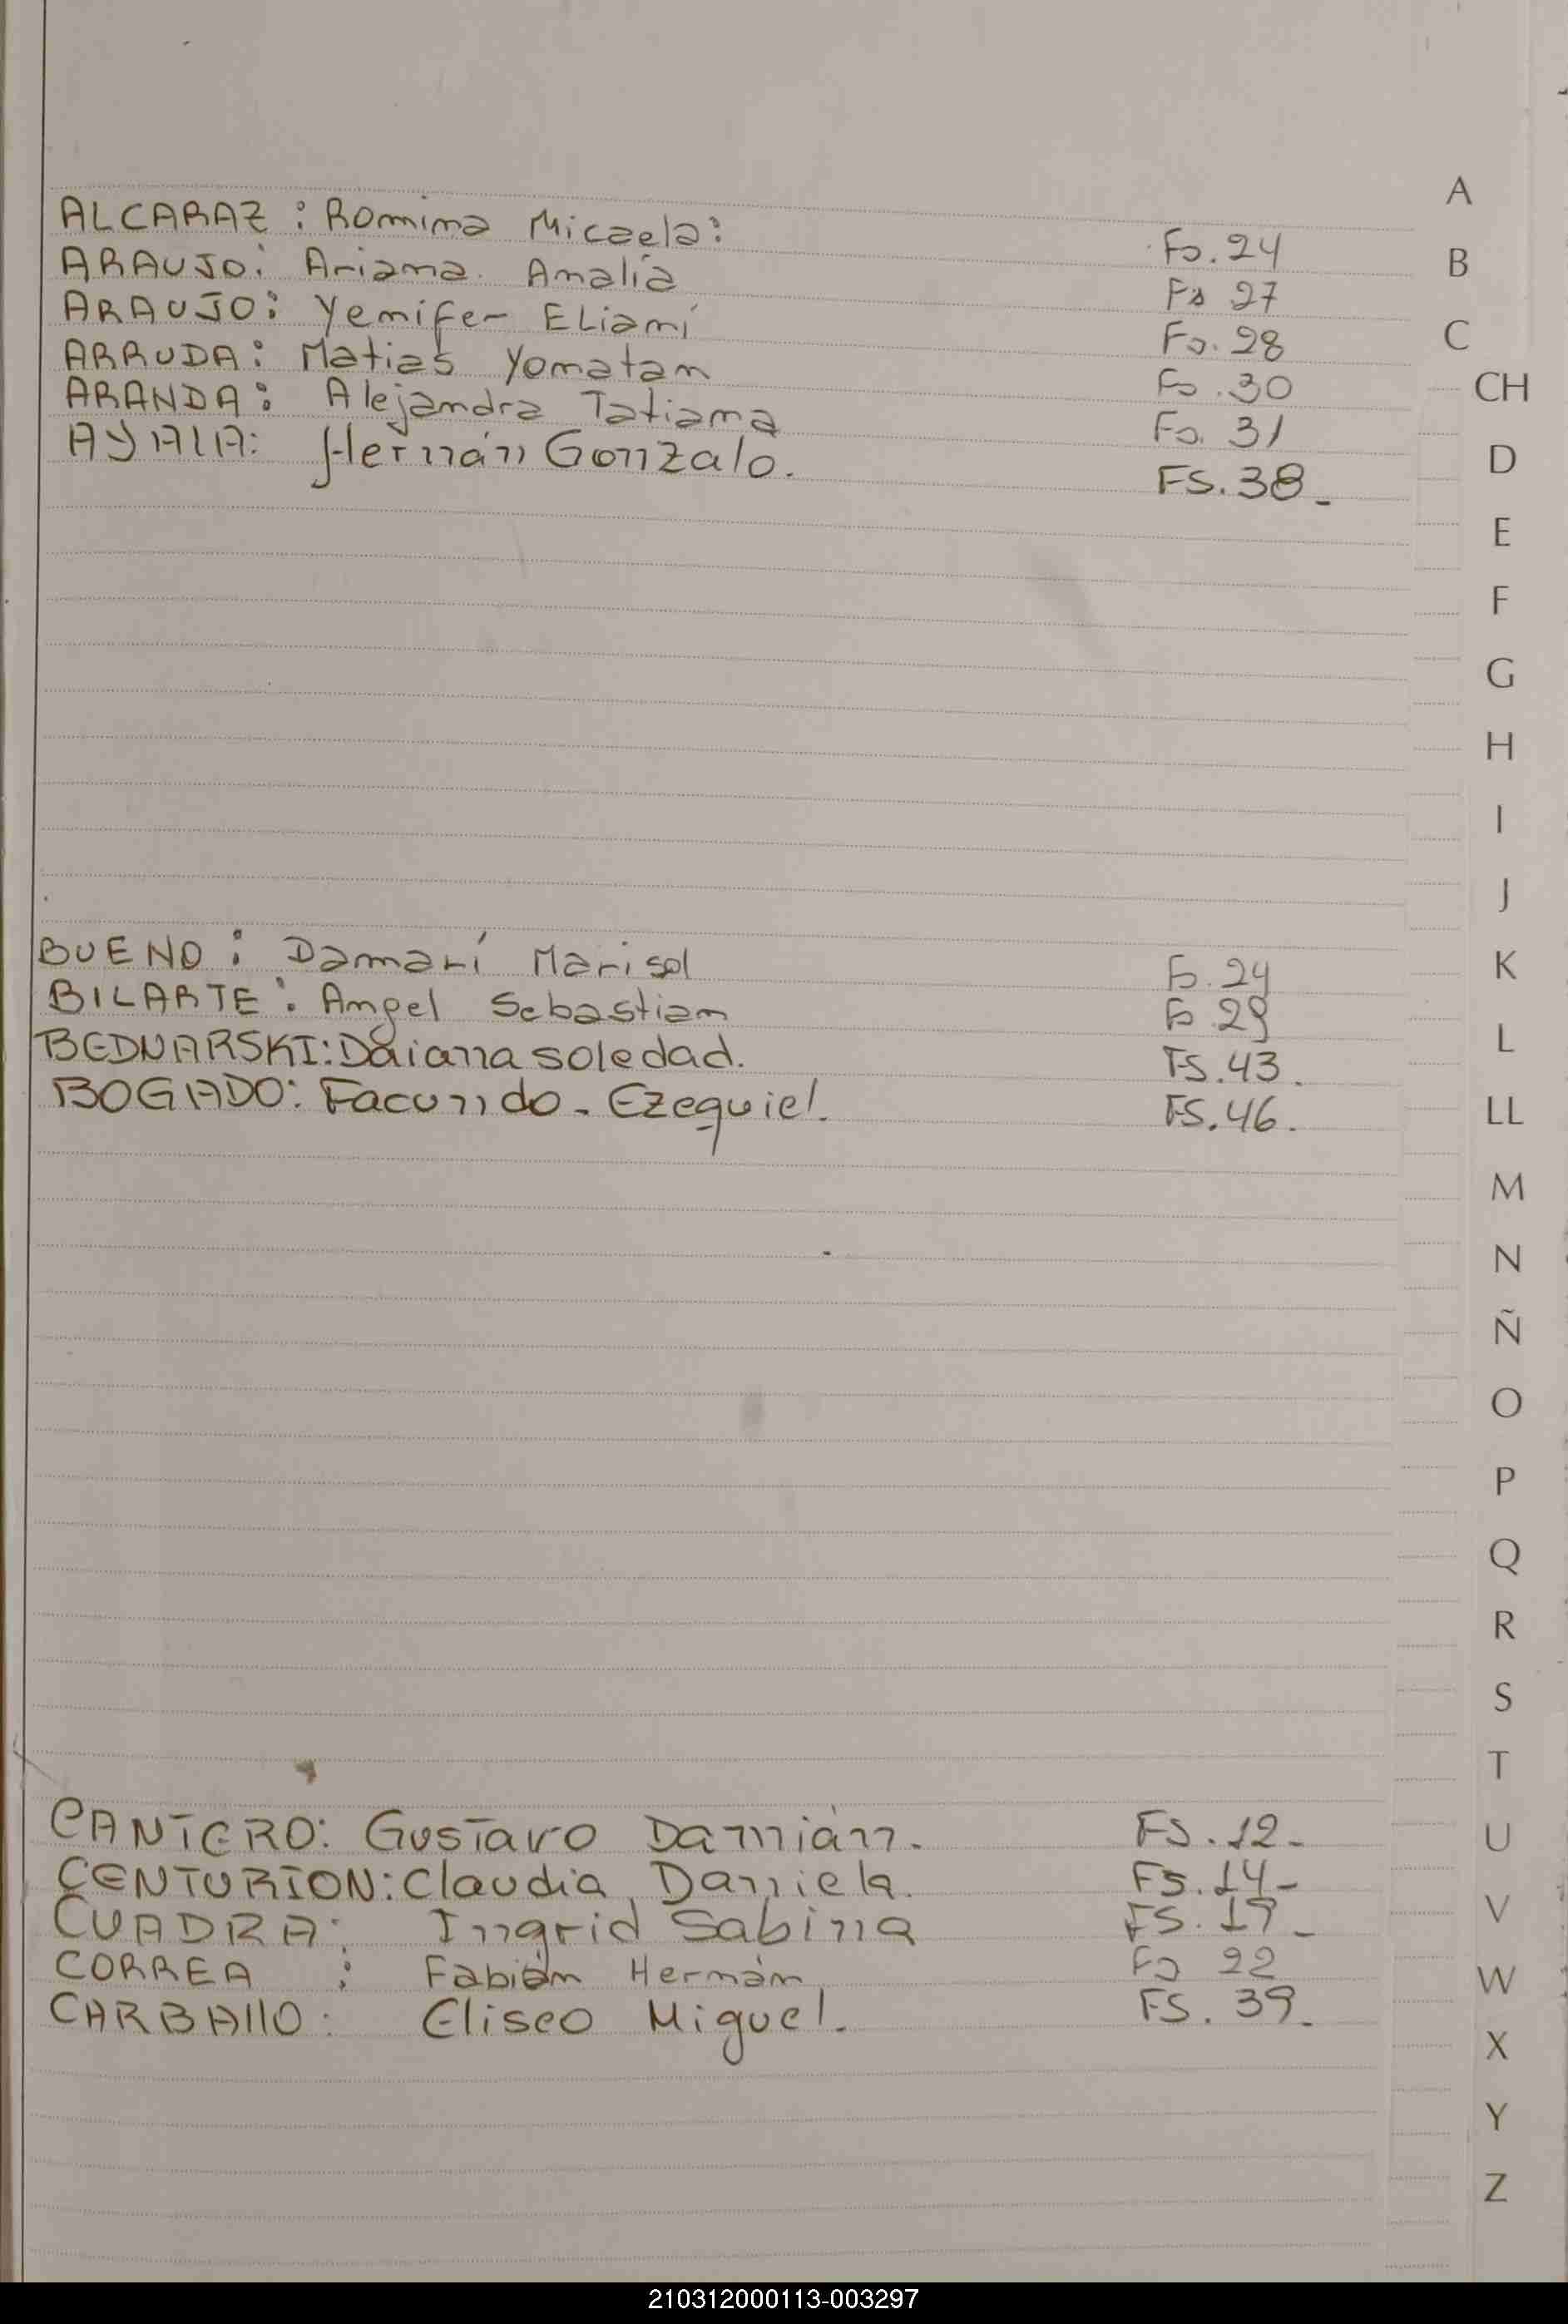 ALCARAZ : Romina Micaela: Fs. 24
ARAUJO: Ariana. Analía Fs 27
ARAUJO: Yenifer ELianí Fs. 28
ARRUDA: Matias Yonatan Fs. 30
ARANDA: Alejandra Tatiana Fs. 31
AYALA: Hernán Gonzalo. FS. 38_
BUENO : Damarí Marisol Fs. 24
BILARTE : Angel Sebastian Fs 29
BEDNARSKI: Daiana soledad. FS. 43.
BOGADO: Facundo. Ezequiel. FS. 46.
CANTERO: Gustavo Damián. FS. 12-
CENTURION: Claudia Daniela. FS. 14-
CUADRA: Ingrid Sabina FS. 17_
CORREA : Fabián Hernán Fs 22
CARBAllO: Eliseo Miguel. FS. 39.
A
B
C
CH
D
E
F
G
H
I
J
K
L
LL
M
N
Ñ
O
P
Q
R
S
T
U
V
W
X
Y
Z
210312000113-003297